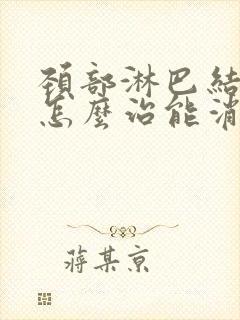 頚部淋巴結
怎麼治能消
蔣某京